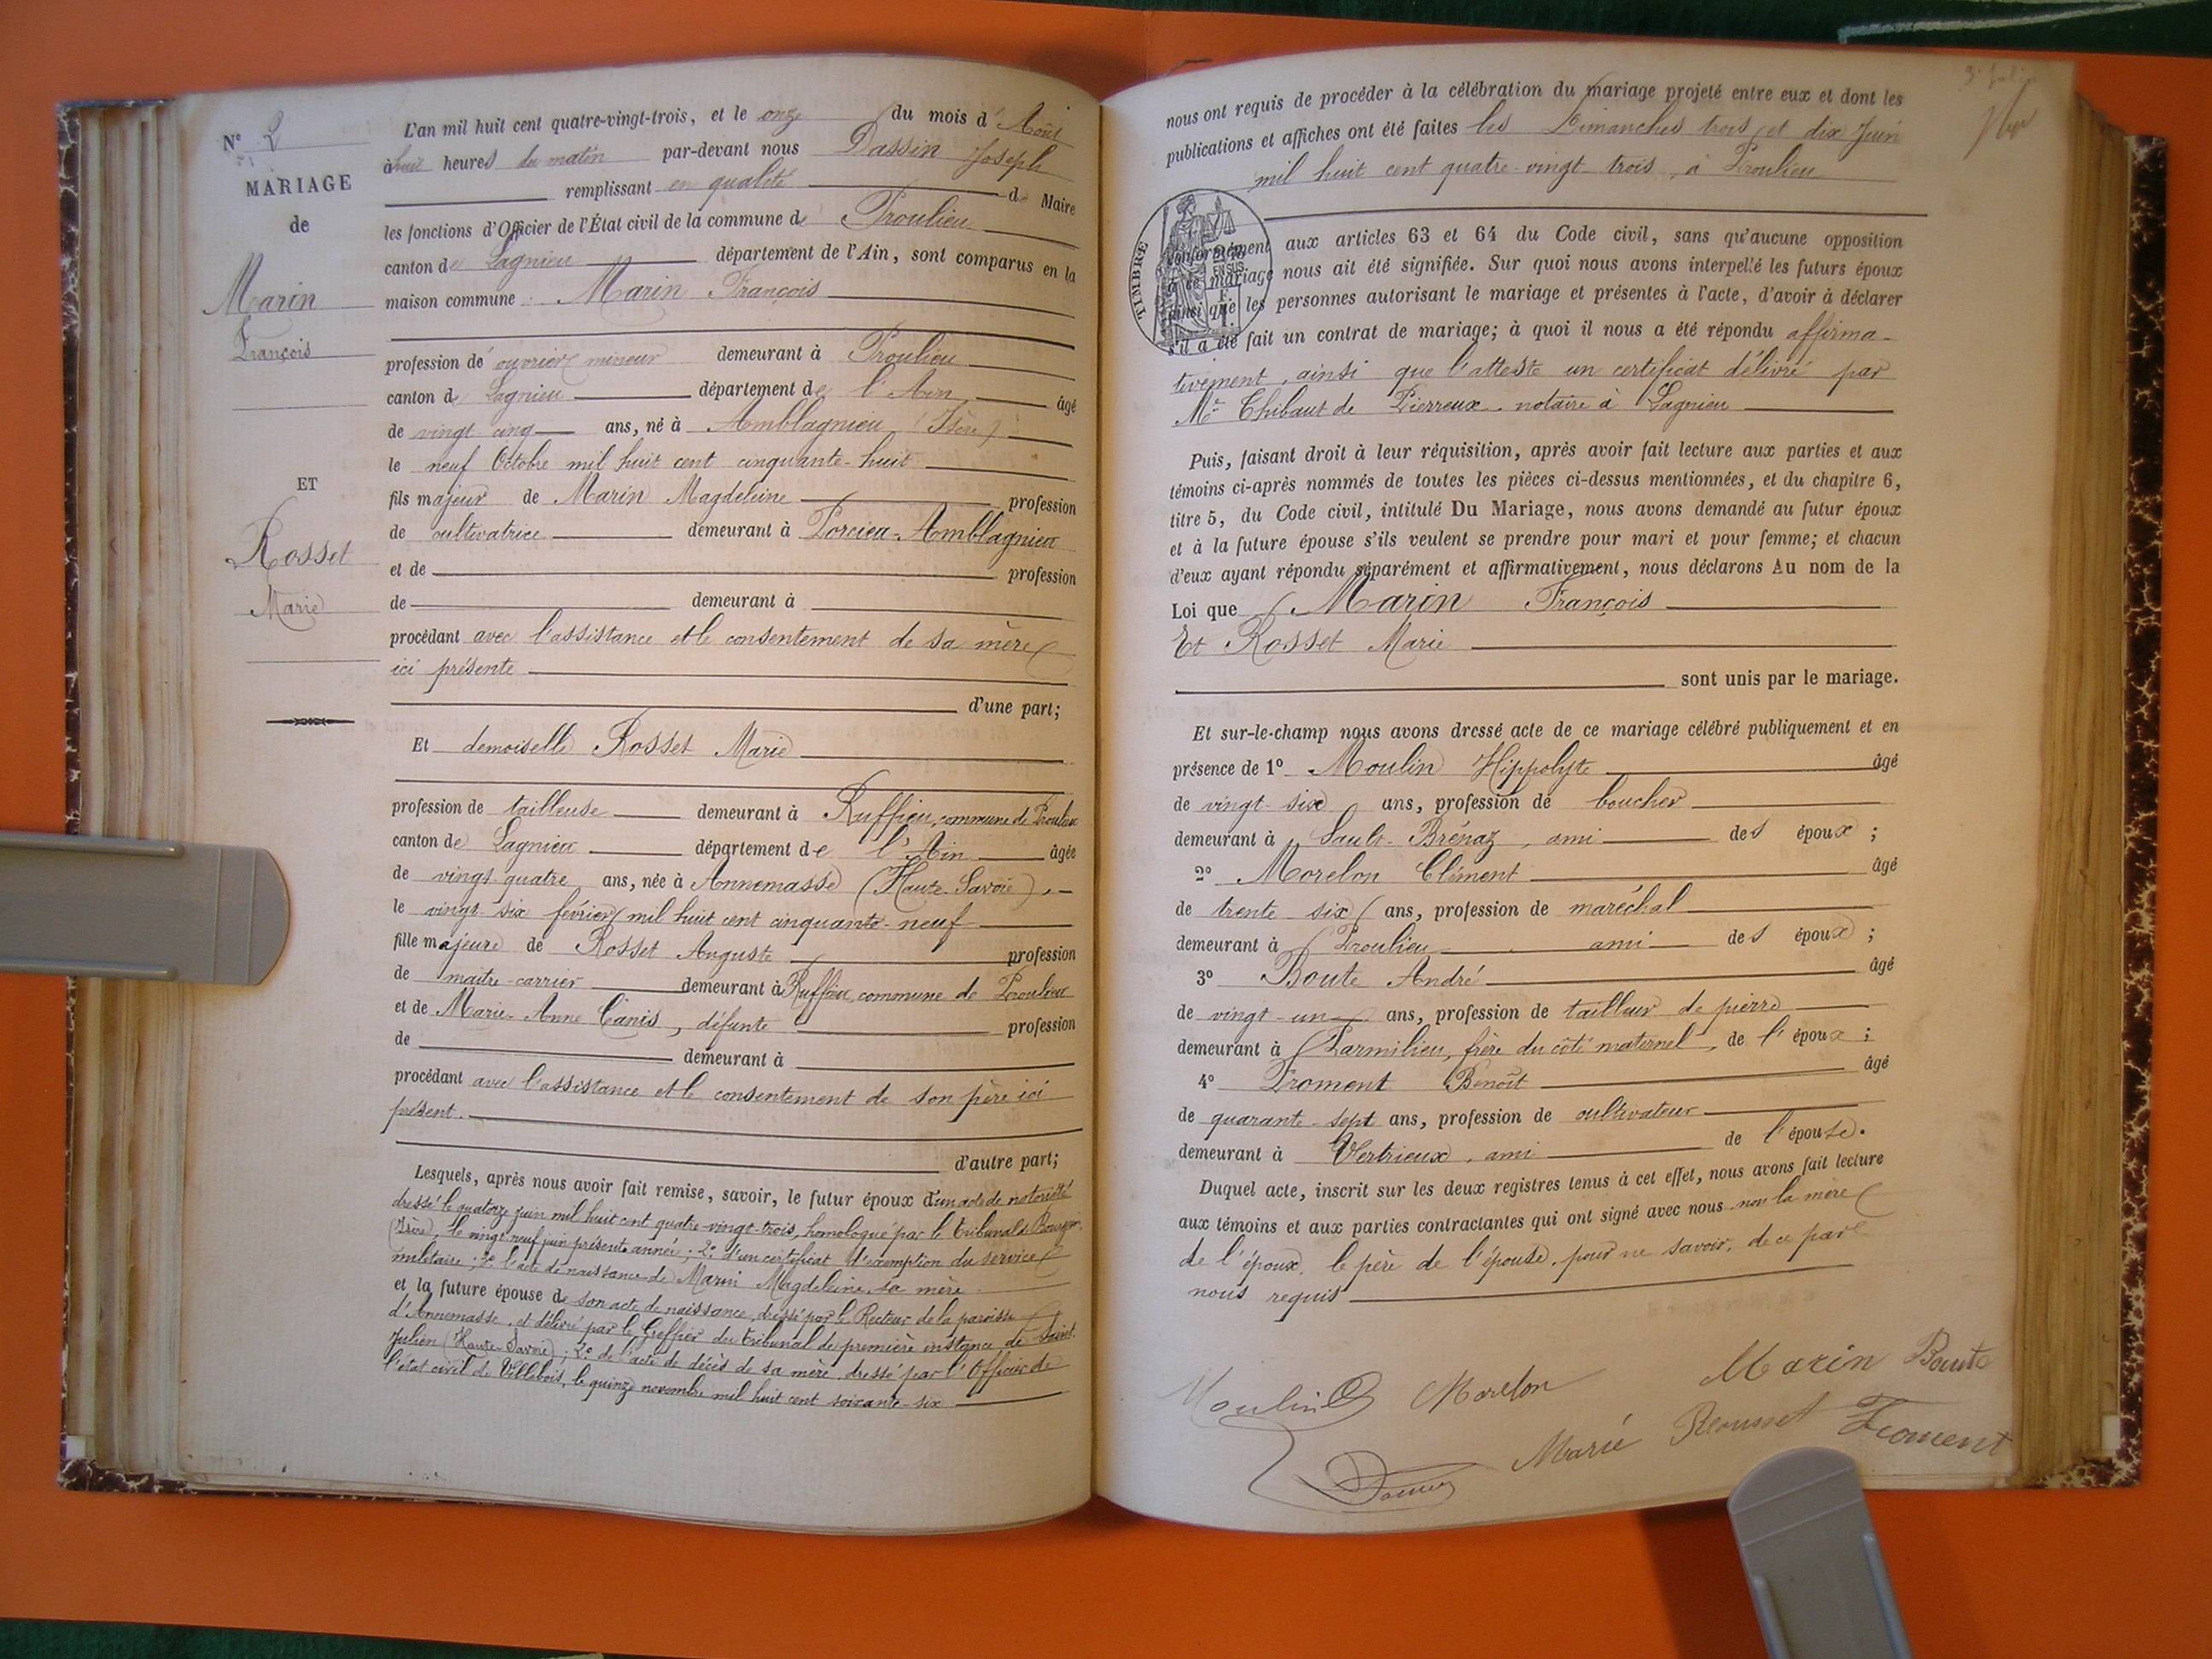 N° 2
MARIAGE
de
Marin
François
ET
Rosset
Marie
L'an mil huit cent quatre-vingt-trois, et le onze du mois d'Août
à huit heures du matin par-devant nous Dassin Joseph
remplissant en qualité de Maire
les fonctions d'Officier de l'État civil de la commune de Proulieu
canton de Lagnieu département de l'Ain, sont comparus en la
maison commune Marin François
profession de ouvrier mineur demeurant à Proulieu
canton de Lagnieu département de l'Ain, âgé
de vingt-cinq ans, né à Amblagnieu (Isère)
le neuf Octobre mil huit cent cinquante-huit
fils majeur de Marin Magdeleine profession
de cultivatrice demeurant à Porcieu-Amblagnieu
et de profession
de demeurant à
procédant avec l'assistance et le consentement de sa mère
ici présente
d'une part;
Et demoiselle Rosset Marie
profession de tailleuse demeurant à Ruffieu, commune de Proulieu
canton de Lagnieu département de l'Ain âgée
de vingt-quatre ans, née à Annemasse (Haute-Savoie),
le vingt-six février mil huit cent cinquante-neuf
fille majeure de Rosset Auguste profession
de maître-carrier demeurant à Ruffieu, commune de Proulieu
et de Marie-Anne Canis, défunte profession
de demeurant à
procédant avec l'assistance et le consentement de son père ici
présent.
d'autre part;
Lesquels, après nous avoir fait remise, savoir, le futur époux d'un acte de notoriété
dressé le quatorze juin mil huit cent quatre-vingt-trois, homologué par le tribunal de Bourgoin,
(Isère), le vingt neuf juin présente année; 2° d'un certificat d'exemption du service
militaire; 3° l'acte de naissance de Marin Magdeleine, sa mère.
et la future épouse de son acte de naissance, dressé par le Recteur de la paroisse
d'Annemasse, et délivré par le Greffier du tribunal de première instance de Saint-
Julien (Haute-Savoie); 2° de l'acte de décès de sa mère, dressé par l'Officier de
l'état civil de Villebois, le quinze novembre mil huit cent soixante-six
nous ont requis de procéder à la célébration du mariage projeté entre eux et dont les
publications et affiches ont été faites les Dimanches trois et dix Juin
mil huit cent quatre-vingt trois, à Proulieu
TIMBRE
conformément aux articles 63 et 64 du Code civil, sans qu'aucune opposition
à ce mariage nous ait été signifiée. Sur quoi nous avons interpellé les futurs époux
ainsi que les personnes autorisant le mariage et présentes à l'acte, d'avoir à déclarer
s'il a été fait un contrat de mariage; à quoi il nous a été répondu affirma-
tivement, ainsi que l'atteste un certificat délivré par
Me Thibaut de Pierreux, notaire à Lagnieu
Puis, faisant droit à leur réquisition, après avoir fait lecture aux parties et aux
témoins ci-après nommés de toutes les pièces ci-dessus mentionnées, et du chapitre 6,
titre 5, du Code civil, intitulé Du Mariage, nous avons demandé au futur époux
et à la future épouse s'ils veulent se prendre pour mari et pour femme; et chacun
d'eux ayant répondu séparément et affirmativement, nous déclarons Au nom de la
Loi que Marin François
Et Rosset Marie
sont unis par le mariage.
Et sur-le-champ nous avons dressé acte de ce mariage célébré publiquement et en
présence de 1° Moulin Hippolyte âgé
de vingt-six ans, profession de boucher
demeurant à Sault-Brénaz, ami des époux;
2° Morelon Clément âgé
de trente six ans, profession de maréchal
demeurant à Proulieu ami des époux;
3° Boute André âgé
de vingt-un ans, profession de tailleur de pierre
demeurant à Parmilieu, frère du côté maternel de l'époux;
4° Froment Benoît âgé
de quarante-sept ans, profession de cultivateur
demeurant à Vertrieux, ami de l'épouse.
Duquel acte, inscrit sur les deux registres tenus à cet effet, nous avons fait lecture
aux témoins et aux parties contractantes qui ont signé avec nous non la mère
de l'époux, le père de l'épouse, pour ne savoir, de ce par
nous requis
Marin Boute
Moulin Morelon
Marie Rousset Froment